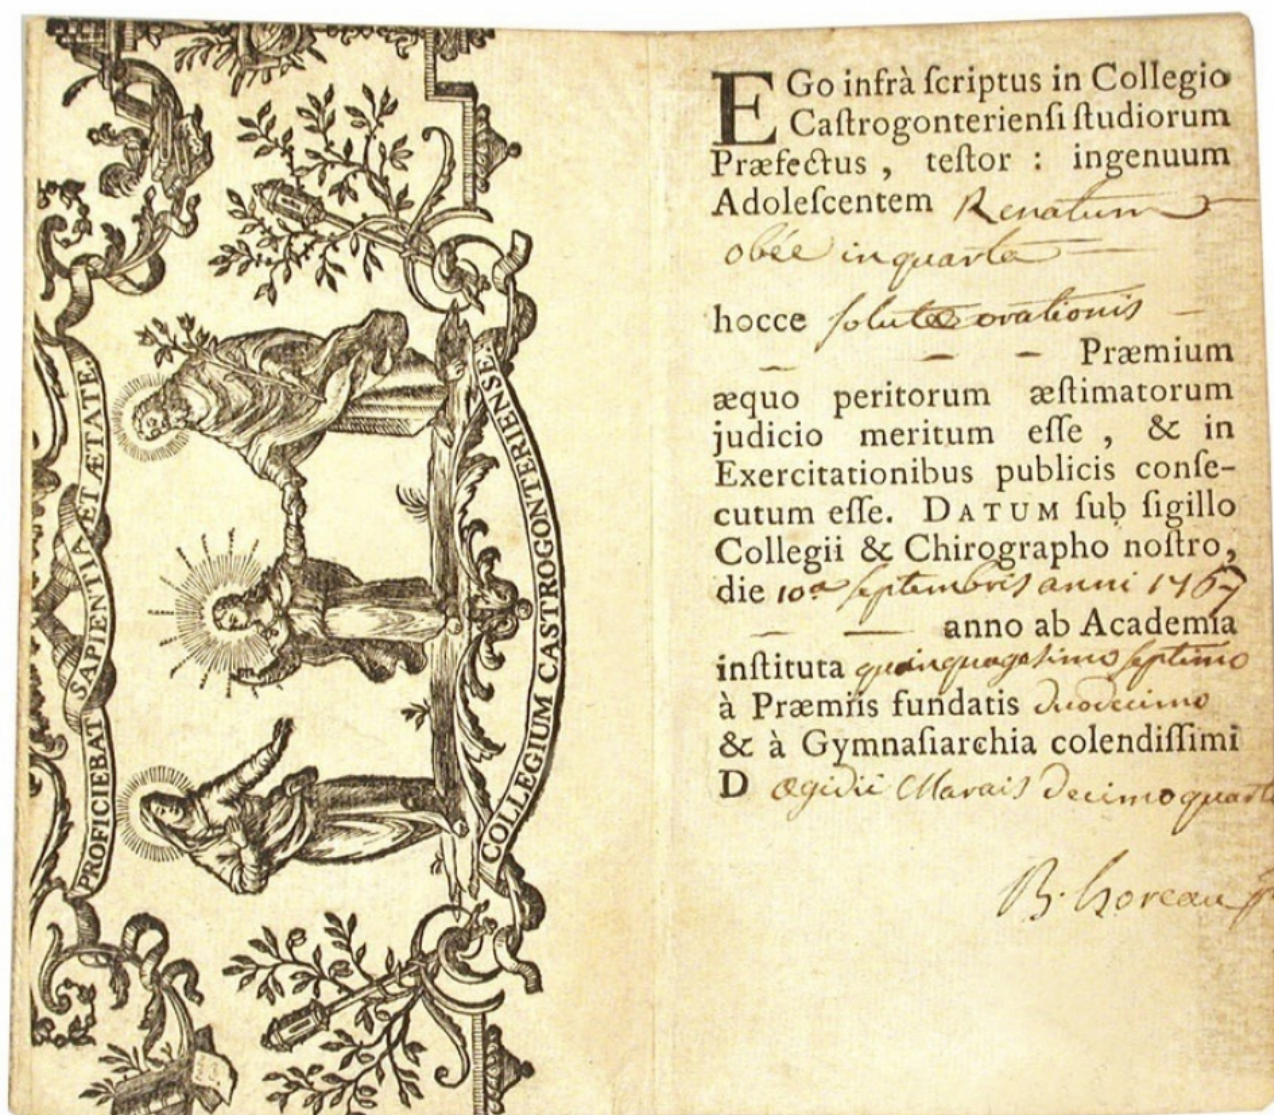 PROFICIEBAT SAPIENTIA ET ÆTATE
COLLEGIUM CASTROGONTERIENSE
EGo infrà ſcriptus in Collegio
Caſtrogonterienſi ſtudiorum
Præfectus , teſtor : ingenuum
Adoleſcentem Renatum
obée in quarta
hocce ſolutæ orationis
Præmium
æquo peritorum æſtimatorum
judicio meritum eſſe , & in
Exercitationibus publicis conſe-
cutum eſſe. DATUM ſub ſigillo
Collegii & Chirographo noſtro,
die 10a ſeptembris anni 1767
anno ab Academia
inſtituta quinquagesimo ſeptimo
à Præmiis fundatis duodecimo
& à Gymnaſiarchia colendiſſimi
D ægidii Marais decimo quarto
B. horeau